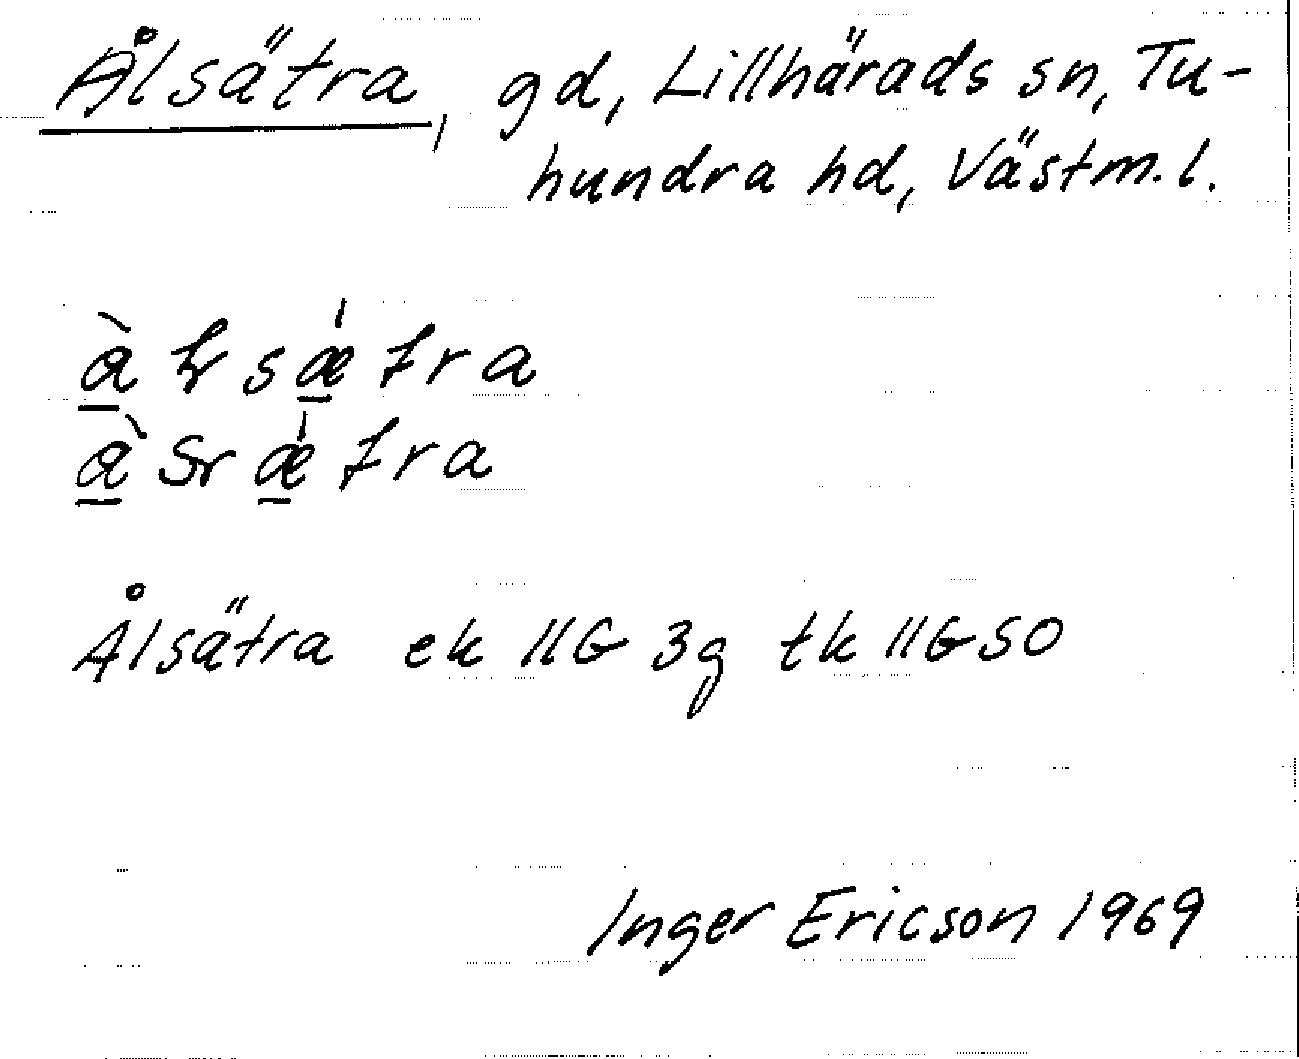 Ålsätra, gd, Lillhärads sn, Tu-
hundra hd, Västm. l.
Ålsätra ek 11G 3g tk 11G SO
Inger Ericson 1969